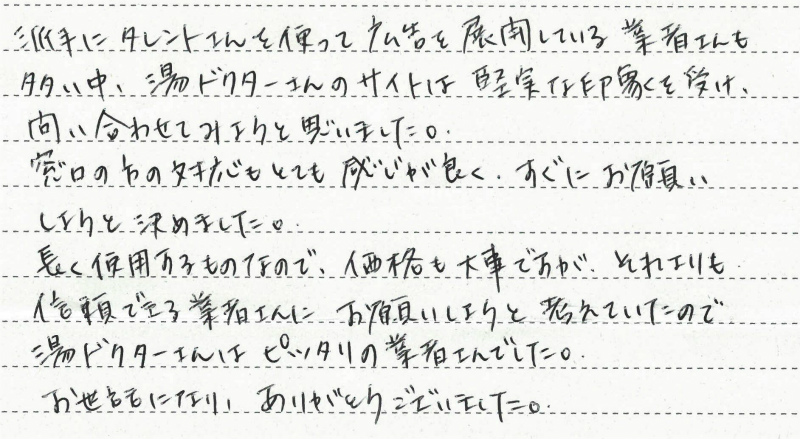 派手にタレントさんを使って広告を展開している業者さんも
多い中、湯ドクターさんのサイトは堅実な印象を受け、
問い合わせてみようと思いました。
窓口の方の対応もとても感じが良く、すぐにお願い
しようと決めました。
長く使用するものなので、価格も大事ですが、それよりも
信頼できる業者さんにお願いしようと考えていたので
湯ドクターさんはピッタリの業者さんでした。
お世話になり、ありがとうございました。